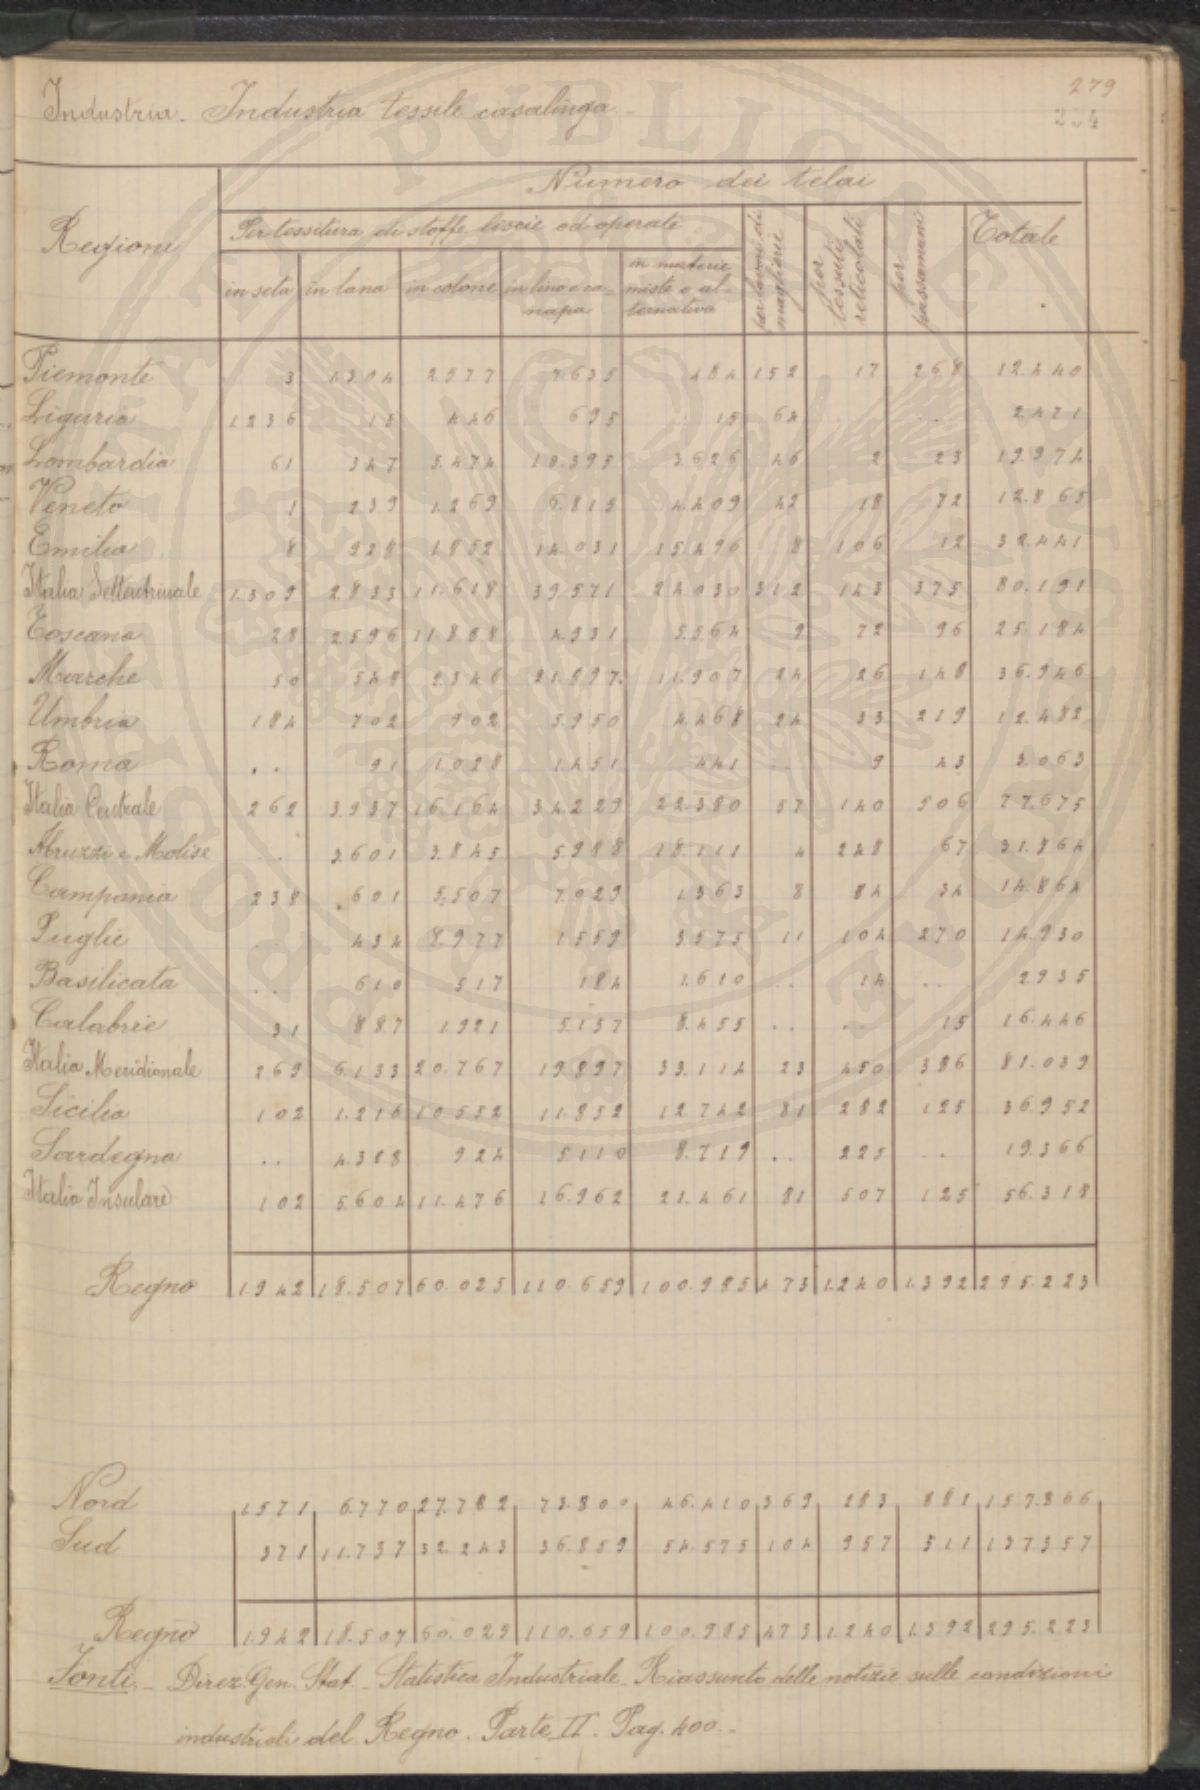 279
254
Industria. Industria tessile casalinga
Numero dei telai
Regione
Per tessitura di stoffe liscie od operate
per lavori di maglierie
per tessuti reticolati
per passamani
Totale
in seta in lana in cotone in lino e ca-napa in materie miste o al-ternativa
Piemonte 3 1.304 2577 7635 484 152 17 268 12.440
Liguria 1236 15 446 695 15 64 .. .. 2471
Lombardia 61 347 5.474 10.395 3.626 46 2 23 19.974
Veneto 1 239 1.269 6.815 4.409 42 18 72 12.865
Emilia 8 928 1852 14.031 15.496 8 106 12 32.441
Italia Settentrionale 1.309 2833 11.618 39.571 24.030 312 143 375 80.191
Toscana 28 2.596 11.888 4.931 5.564 9 72 96 25.184
Marche 50 548 2.346 21.897 11.907 24 26 148 36.946
Umbria 184 702 902 5.950 4.468 24 33 219 12.482
Roma .. 91 1.028 1.451 441 .. 9 43 3.063
Italia Centrale 262 3.937 16.164 34.229 22.380 57 140 506 77.675
Abruzzi e Molise .. 3.601 3.845 5.988 18.111 4 248 67 31.864
Campania 238 601 5.507 7.029 1.363 8 84 34 14.864
Puglie .. 434 8.977 1.559 3.575 11 104 270 14.930
Basilicata .. 610 517 184 1.610 .. 14 .. 2935
Calabrie 31 887 1.921 5.137 8.455 .. .. 15 16.446
Italia Meridionale 269 6.133 20.767 19.897 33.114 23 450 386 81.039
Sicilia 102 1.216 10.552 11.852 12.742 81 282 125 36.952
Sardegna .. 4.388 924 5.110 8.719 .. 225 .. 19.366
Italia Insulare 102 5.604 11.476 16.962 21.461 81 507 125 56.318
Regno 1.942 18.507 60.025 110.659 100.985 473 1.240 1.392 295.223
Nord 1.571 6.770 27.782 73.800 46.410 369 283 881 157.866
Sud 371 11.737 32.243 36.859 54.575 104 957 511 137.357
Regno 1.942 18.507 60.025 110.659 100.985 473 1.240 1.392 295.223
Fonti - Direz. Gen. Stat. - Statistica Industriale - Riassunto delle notizie sulle condizioni
industriali del Regno. Parte II. Pag. 400.-